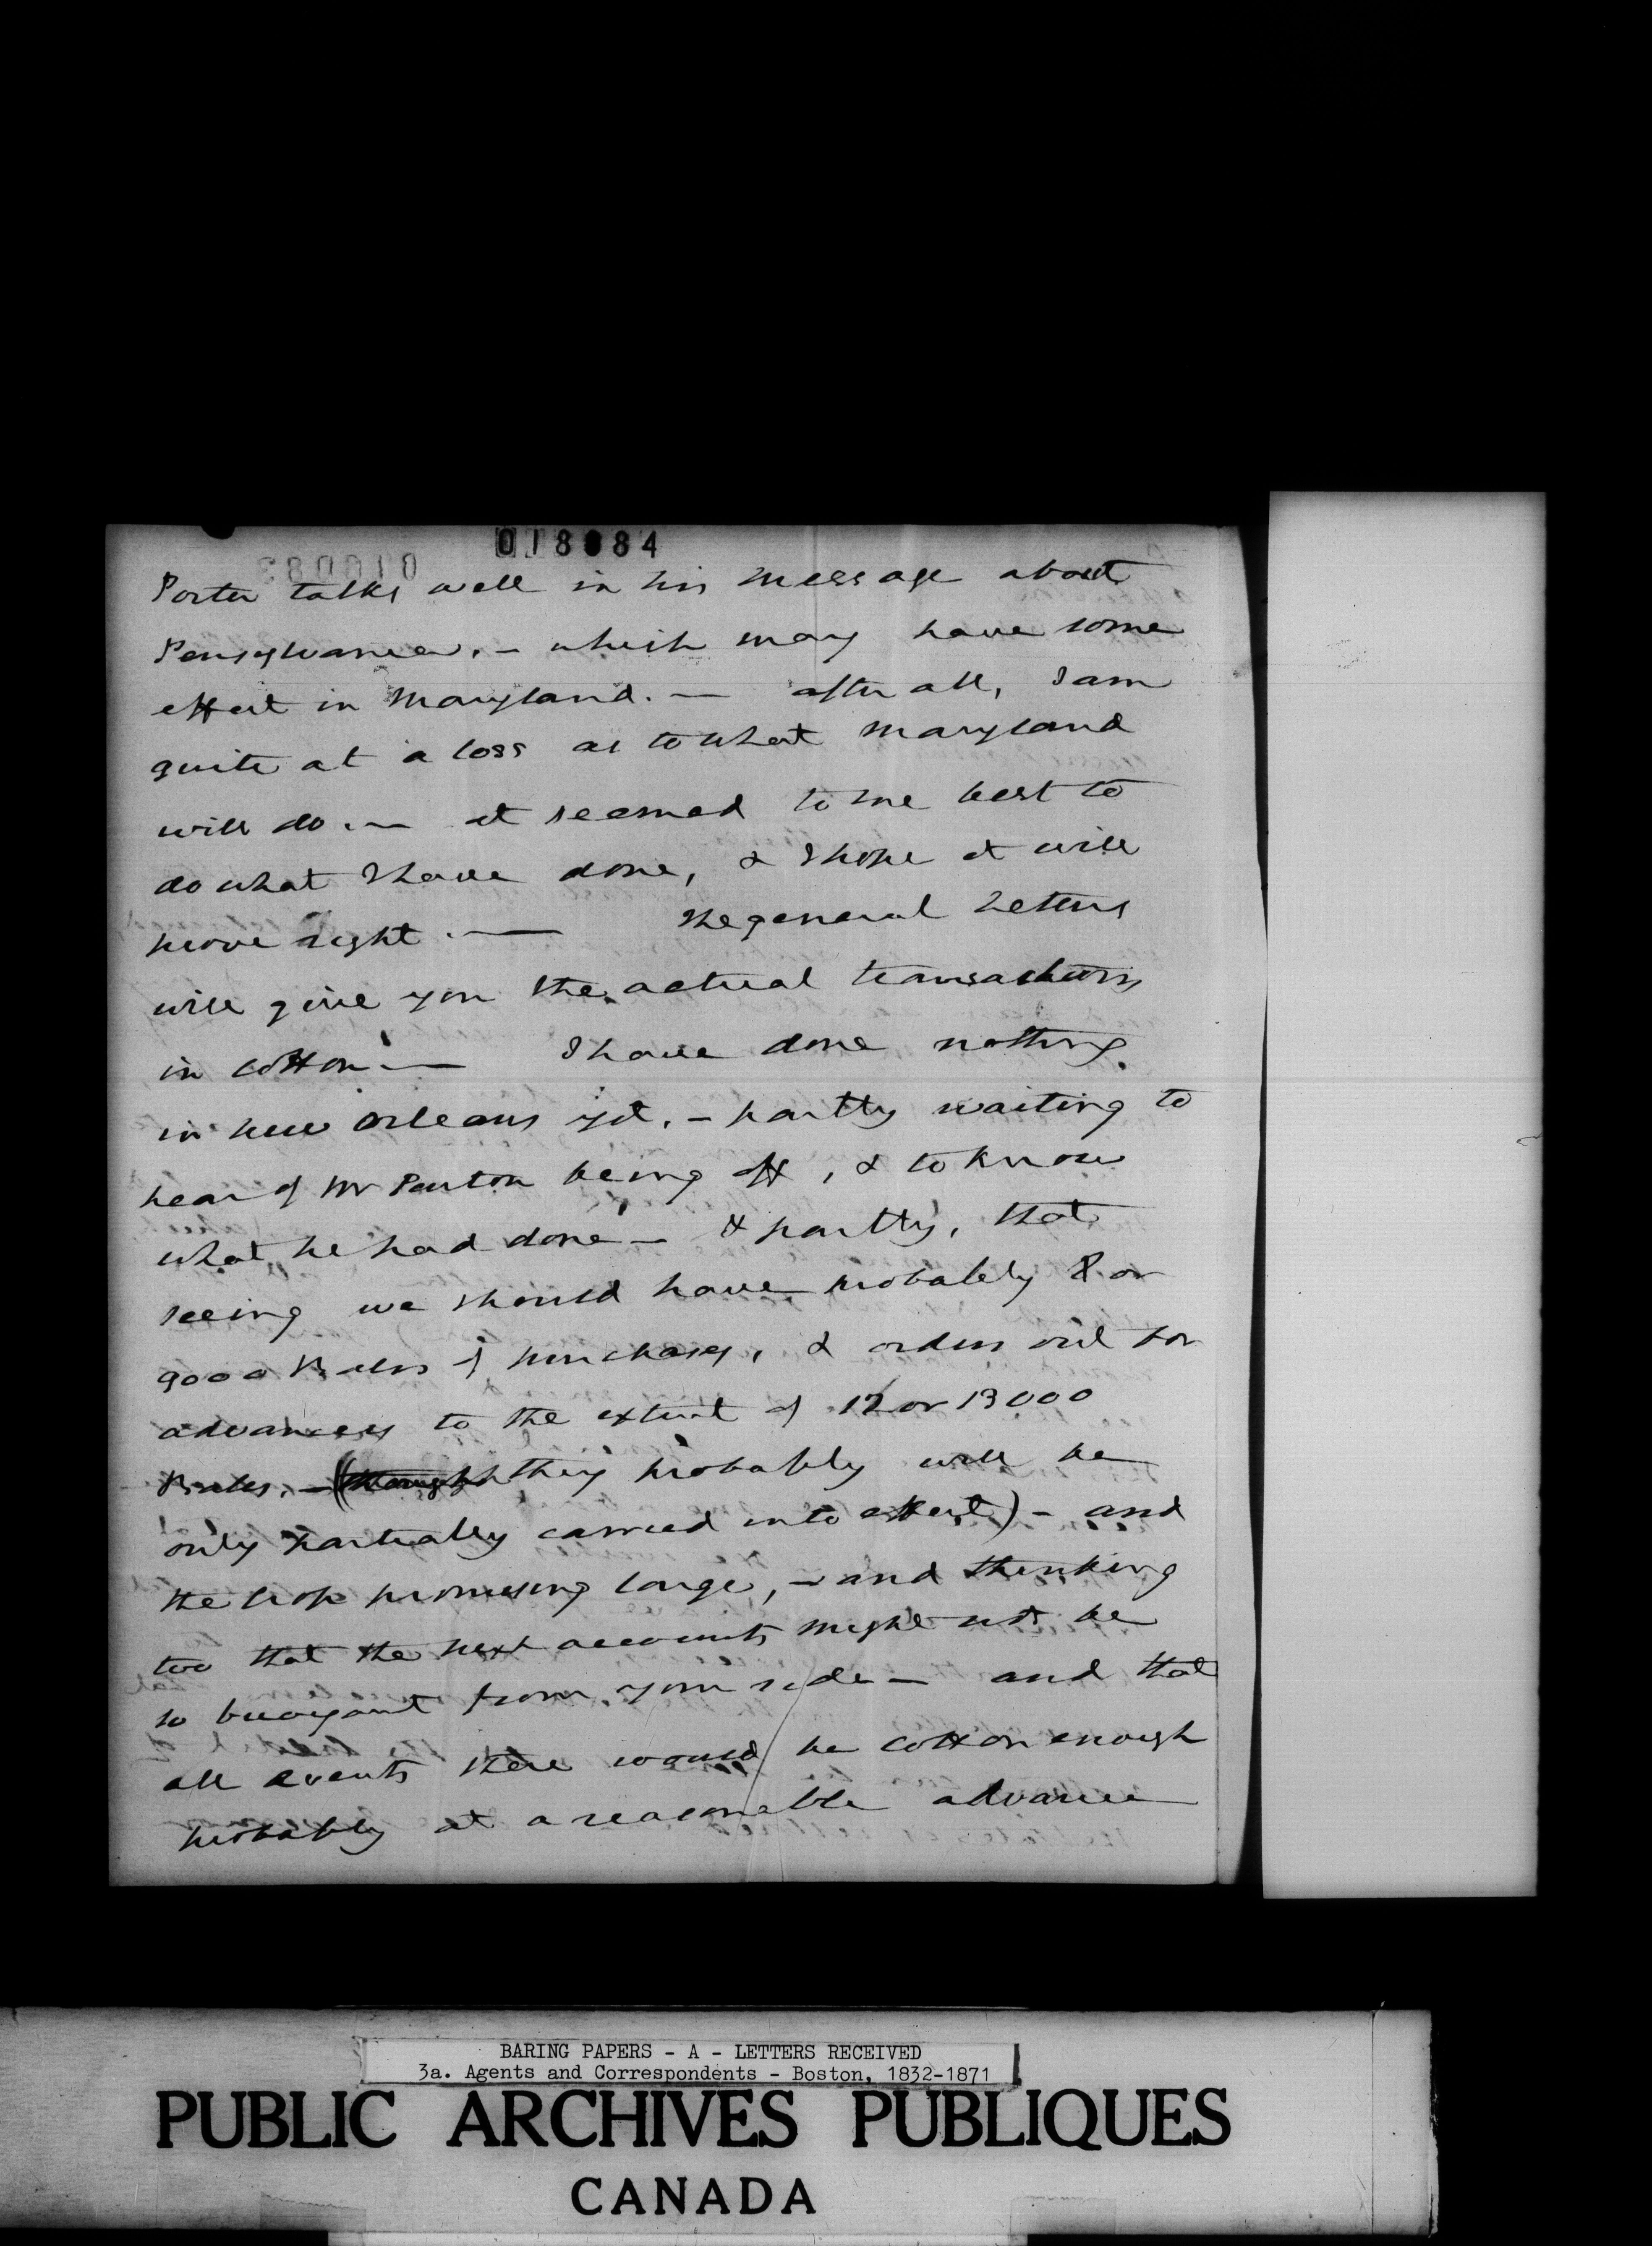 018084
Porter talks well in his message about
Pensylvania. - which may have some
effect in Maryland. — after all, I am
quite at a loss as to what Maryland
will do. — it seemed to me best to
do what I have done, & I hope it will
prove right. — The general Letters
will give you the actual transactions
in cotton. — I have done nothing
in New Orleans yet. - partly waiting to
hear of Mr Panton being off, & to know
what he had done - & partly, that
seeing we should have probably 8 or
9000 Bales of purchases, & orders out for
advances to the extent of 12 or 13000
Bales. - (though they probably will be
only partially carried into effect) - and
the crop promising large, - and thinking
too that the next accounts might not be
so buoyant from your side - and that
all events there would be cotton enough
probably at a reasonable advance
BARING PAPERS - A - LETTERS RECEIVED
3a. Agents and Correspondents - Boston, 1832-1871
PUBLIC ARCHIVES PUBLIQUES
CANADA